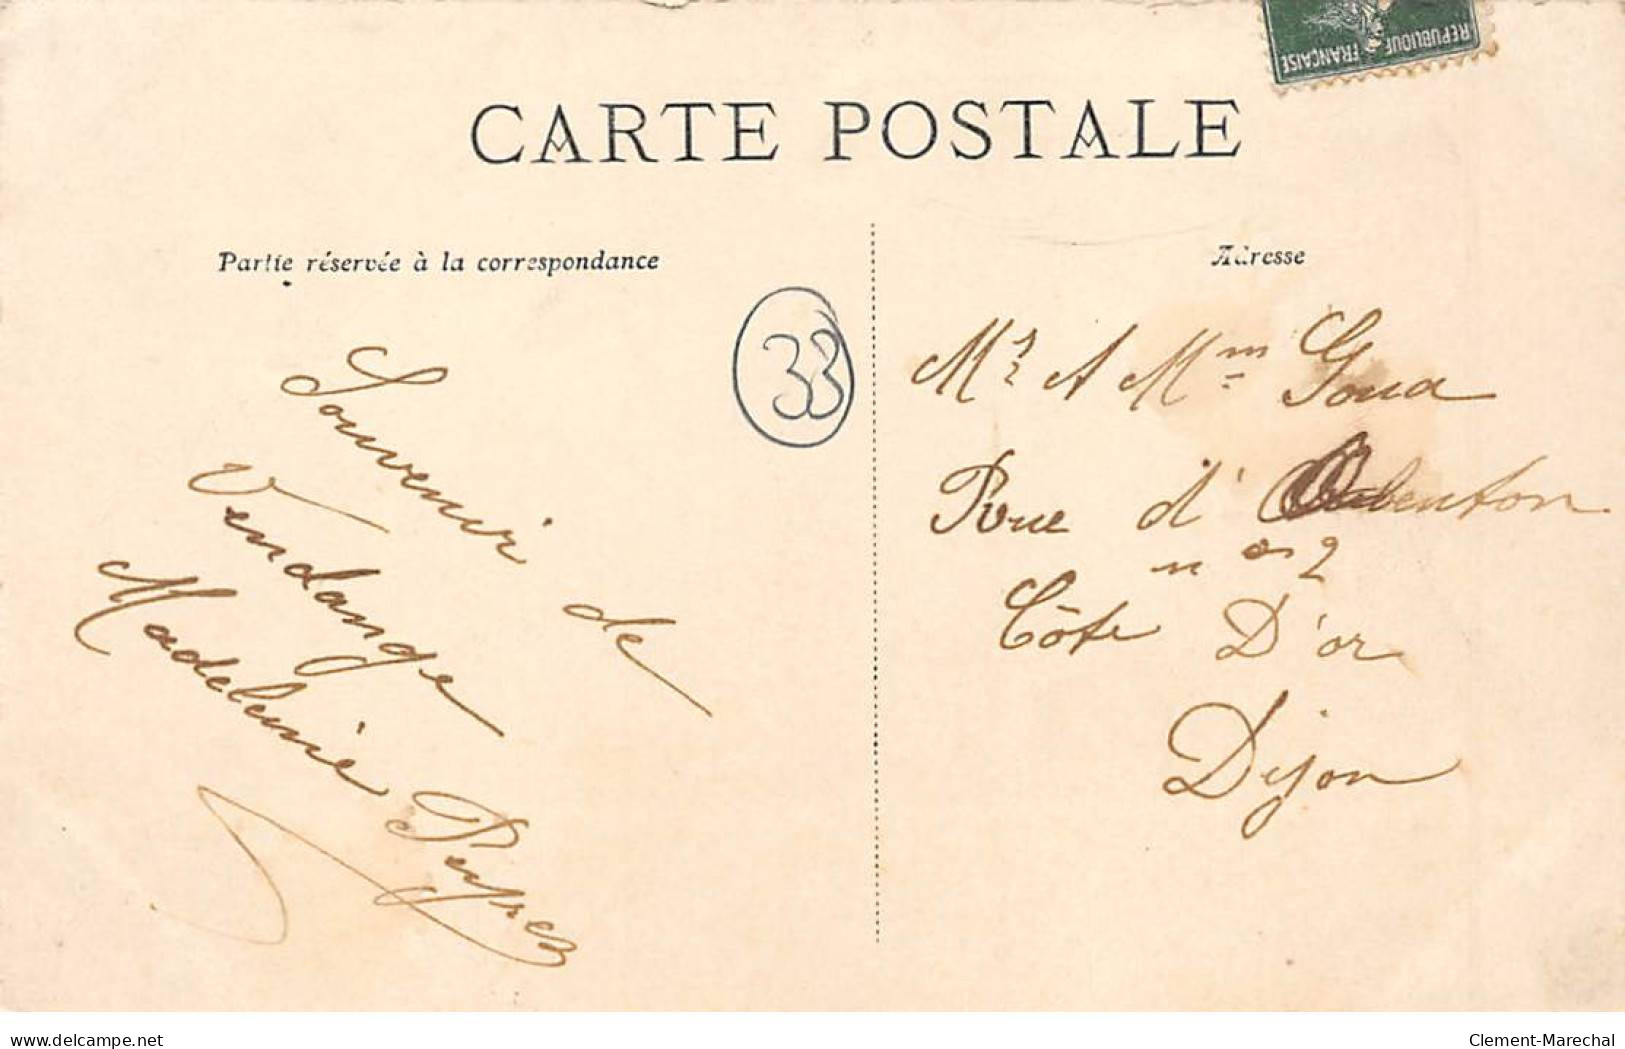 REPUBLIQUE FRANÇAISE
CARTE POSTALE
Partie réservée à la correspondance
Adresse
33
Souvenir de
Vendange
Madeleine
Mr A Mm Goua
Rue d'
n° 2
Côte D'or
Dijon
delcampe.net
Clement-Marechal